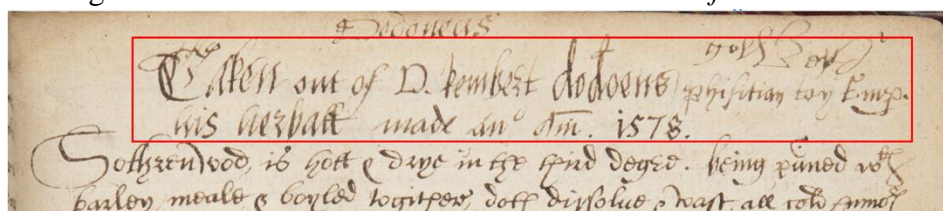 Dodoneus
Taken out of D. Rembert dodoens phisitian to yͤ Emp.
his herball made an° dm̄. 1578.
Sothrenwod, is hott & drye in the third degre. being puned wᵗʰ
barley meale & boyled togither, doth dissolve & wast all cold